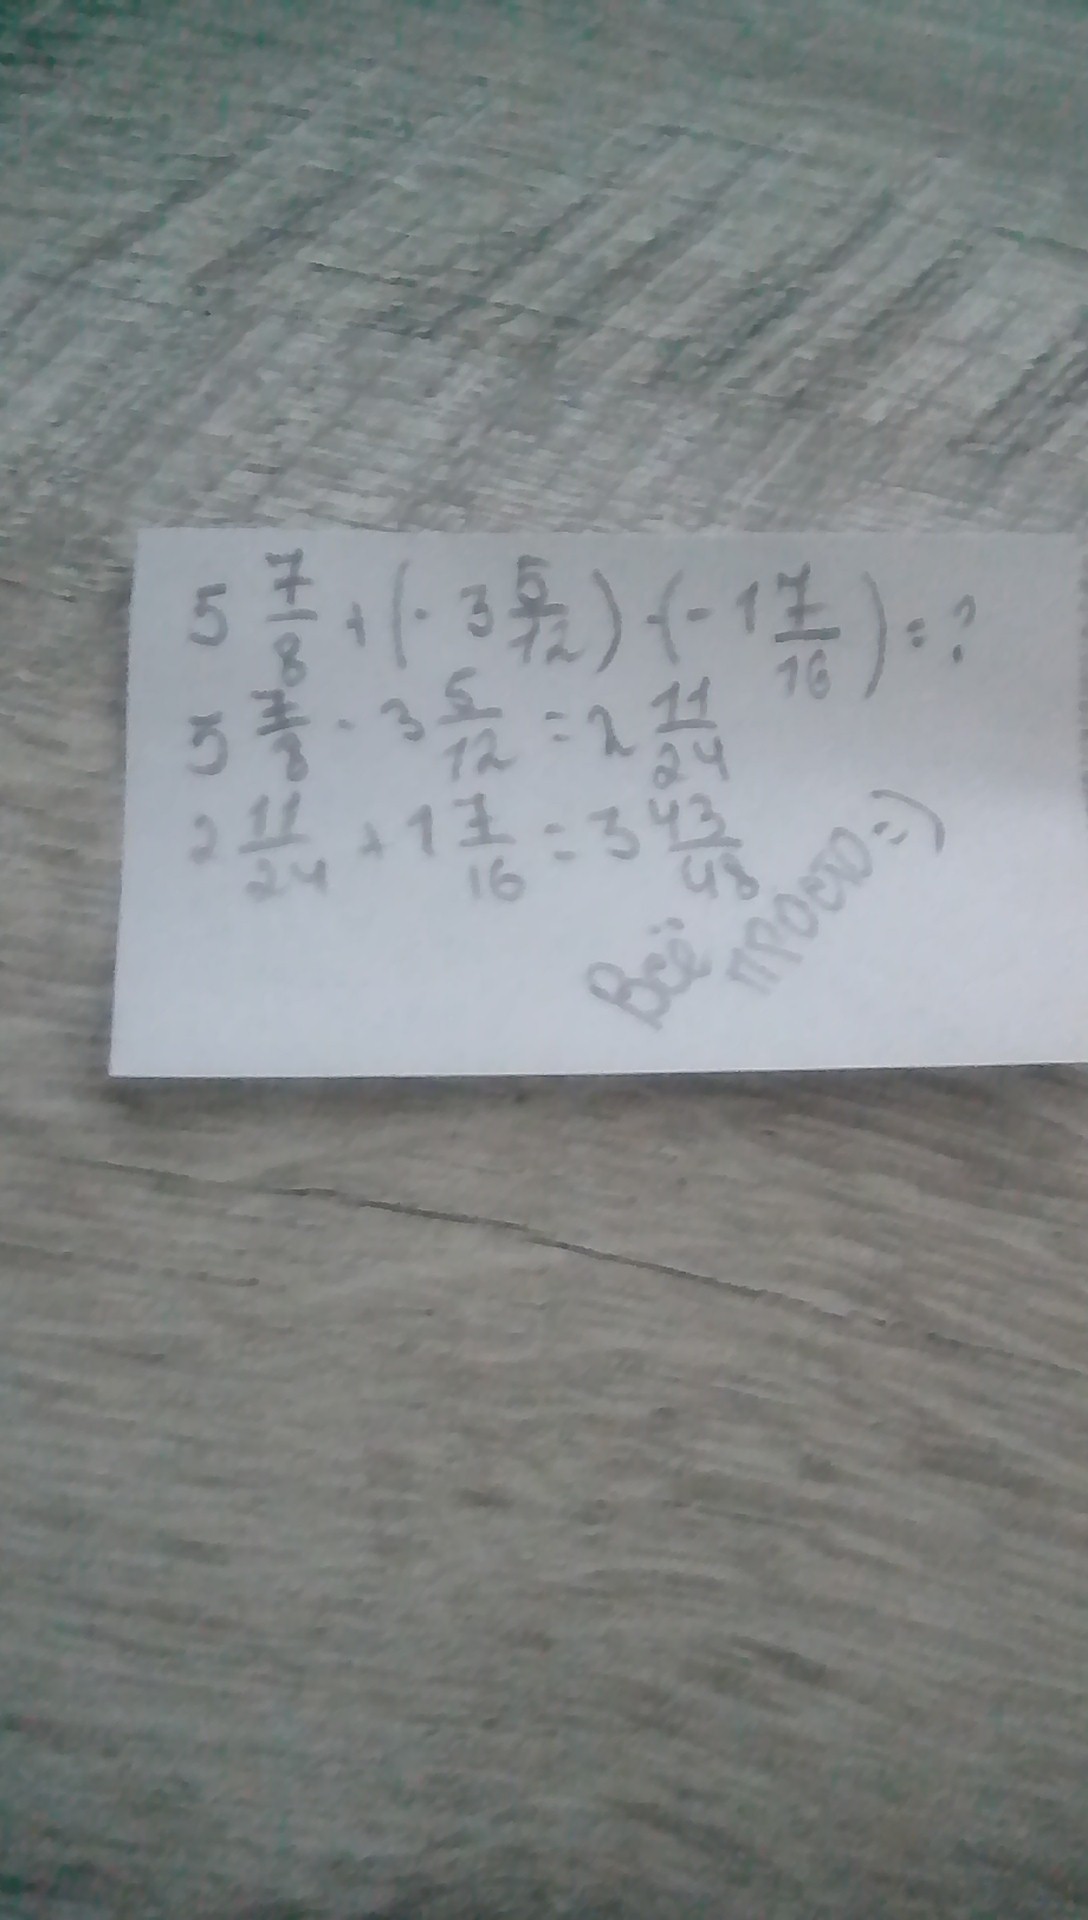 5 7/8 + (- 3 5/12) - (- 1 7/16) = ?
5 7/8 - 3 5/12 = 2 11/24
2 11/24 + 1 7/16 = 3 43/48
Всё просто =)